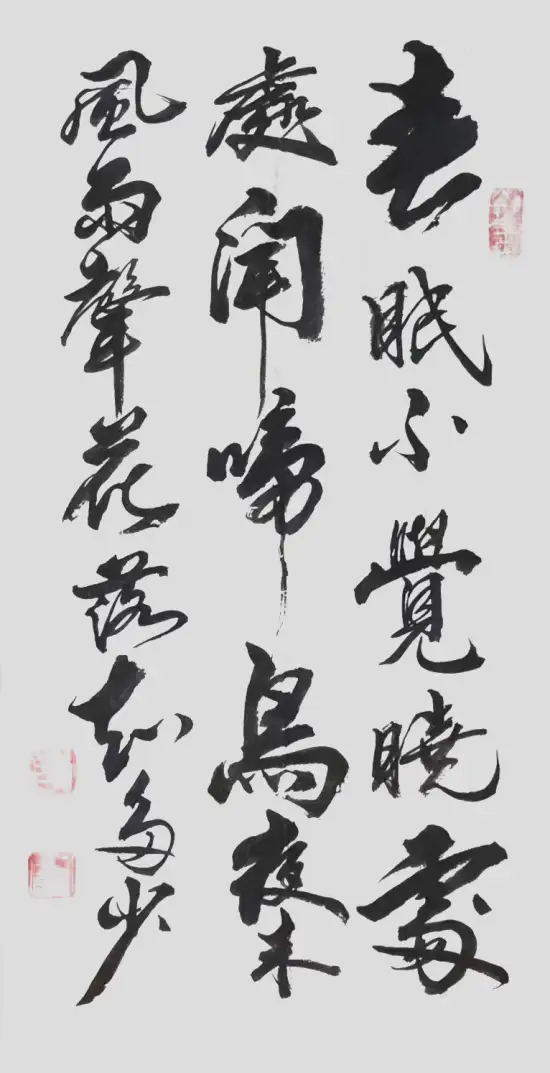 春眠不覺曉處
處聞啼鳥夜來
風雨聲花落知多少